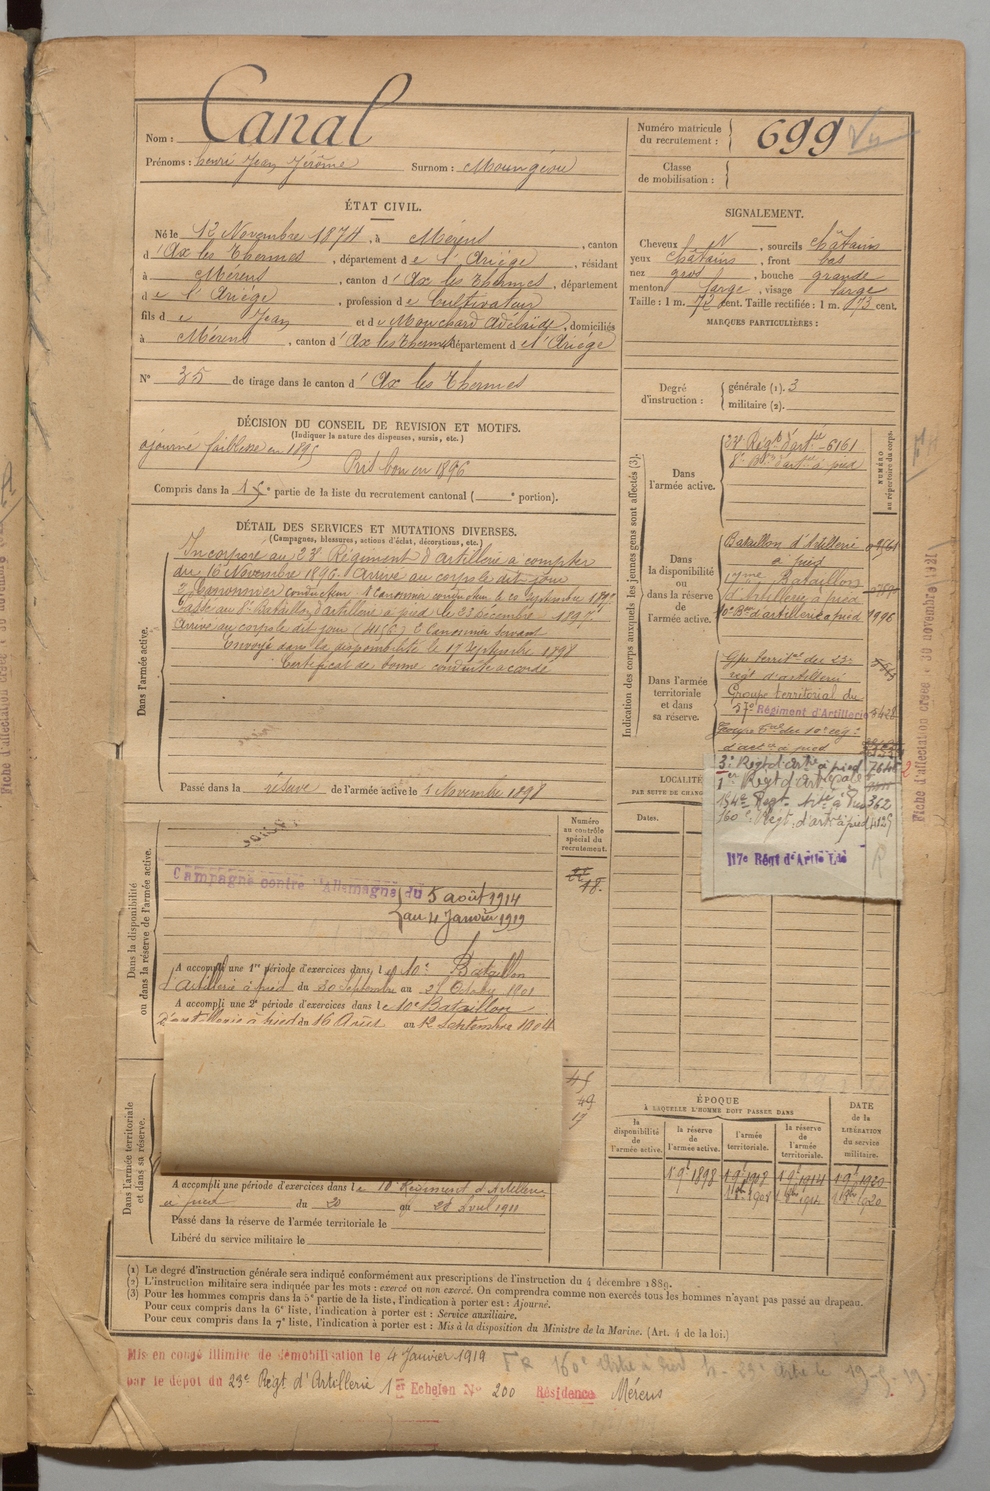 Nom : Canal
Prénoms : henri Jean Jérôme Surnom : Moungéru
ÉTAT CIVIL.
Né le 12 Novembre 1874, à Mérens, canton
d'Ax les Thermes, département de l'Ariège, résidant
à Mérens, canton d'Ax les Thermes, département
de l'Ariège, profession de Cultivateur
fils de Jean et de Mouchard Adélaïde, domiciliés
à Mérens, canton d'Ax les Thermes département de l'Ariège
N° 35 de tirage dans le canton d'Ax les Thermes
DÉCISION DU CONSEIL DE REVISION ET MOTIFS.
(Indiquer la nature des dispenses, sursis, etc.)
ajourné faiblesse en 1895
Pris bon en 1896
Compris dans la 1e partie de la liste du recrutement cantonal ( e portion).
DÉTAIL DES SERVICES ET MUTATIONS DIVERSES.
(Campagnes, blessures, actions d'éclat, décorations, etc.)
Dans l'armée active.
Incorporé au 23e Régiment d'artillerie à compter
du 16 Novembre 1896. Arrivé au corps le dit jour
2e Canonnier conducteur 1er Canonnier conducteur le 20 septembre 1897
Passé au 8e Bataillon d'artillerie à pied le 23 décembre 1897
Arrivé au corps le dit jour (4156) 2e Canonnier servant
Envoyé dans la disponibilité le 17 Septembre 1898
Certificat de bonne conduite accordé
Passé dans la réserve de l'armée active le 1 Novembre 1898
Dans la disponibilité
ou dans la réserve de l'armée active.
Numéro
au contrôle
spécial du
recrutement.
18.
Campagne contre l'Allemagne du 5 août 1914
au 4 Janvier 1919
A accompli une 1re période d'exercices dans le 10e Bataillon
d'artillerie à pied du 30 Septembre au 27 Octobre 1901
A accompli une 2e période d'exercices dans le 10e Bataillon
d'artillerie à pied du 16 Août au 12 Septembre 1904
Dans l'armée territoriale
et dans sa réserve.
45
49
17
A accompli une période d'exercices dans le 10e Régiment d'Artillerie
à pied du 20 au 28 Avril 1911
Passé dans la réserve de l'armée territoriale le
Libéré du service militaire le
Numéro matricule
du recrutement : 699 Vu
Classe
de mobilisation :
SIGNALEMENT.
Cheveux N, sourcils châtains
yeux châtains, front bas
nez gros, bouche grande
menton large, visage large
Taille : 1 m. 72 cent. Taille rectifiée : 1 m. 73 cent.
MARQUES PARTICULIÈRES :
Degré
d'instruction : générale (1). 3
militaire (2).
Indication des corps auxquels les jeunes gens sont affectés (3).
NUMÉRO
au répertoire du corps.
Dans
l'armée active.
23e Régt d'artie - 6161
8e Bon d'artie à pied
Dans
la disponibilité
ou
dans la réserve
de
l'armée active.
Bataillon d'Artillerie
à pied
17me Bataillon
d'Artillerie à pied
10e Bon d'artillerie à pied 1996
Dans l'armée
territoriale
et dans
sa réserve.
Gpe territal du 23e
régt d'artillerie
Groupe territorial du
57e Régiment d'Artillerie 5428
Groupe tal du 10e rég.
d'artie à pied
3e Régt d'art. à pied 7645
1er Régt d'art. cpale
154e Regt. Artie à Pied 362
160e Régt. d'artie à pied 4125
117e Régt d'Artie Lde
R
LOCALITÉ
PAR SUITE DE CHANG
Dates.
ÉPOQUE
À LAQUELLE L'HOMME DOIT PASSER DANS
la
disponibilité
de
l'armée active.
la réserve
de
l'armée active.
l'armée
territoriale.
la réserve
de
l'armée
territoriale.
DATE
de la
LIBÉRATION
du service
militaire.
1 9e 1898 1 9e 1908 1 9e 1914 1 9e 1920
1 9bre 1908 1 9bre 1914 1 9bre 1920
Fiche d'affectation créée le 30 novembre 1921
(1) Le degré d'instruction générale sera indiqué conformément aux prescriptions de l'instruction du 4 décembre 1889.
(2) L'instruction militaire sera indiquée par les mots : exercé ou non exercé. On comprendra comme non exercés tous les hommes n'ayant pas passé au drapeau.
(3) Pour les hommes compris dans la 5e partie de la liste, l'indication à porter est : Ajourné.
Pour ceux compris dans la 6e liste, l'indication à porter est : Service auxiliaire.
Pour ceux compris dans la 7e liste, l'indication à porter est : Mis à la disposition du Ministre de la Marine. (Art. 4 de la loi.)
Mis en congé illimité de démobilisation le 4 Janvier 1919
par le dépôt du 23e Régt d'Artillerie 1er Echelon N° 200 Résidence Mérens
160e Artie à Pied 23e Artie le 19-5-19